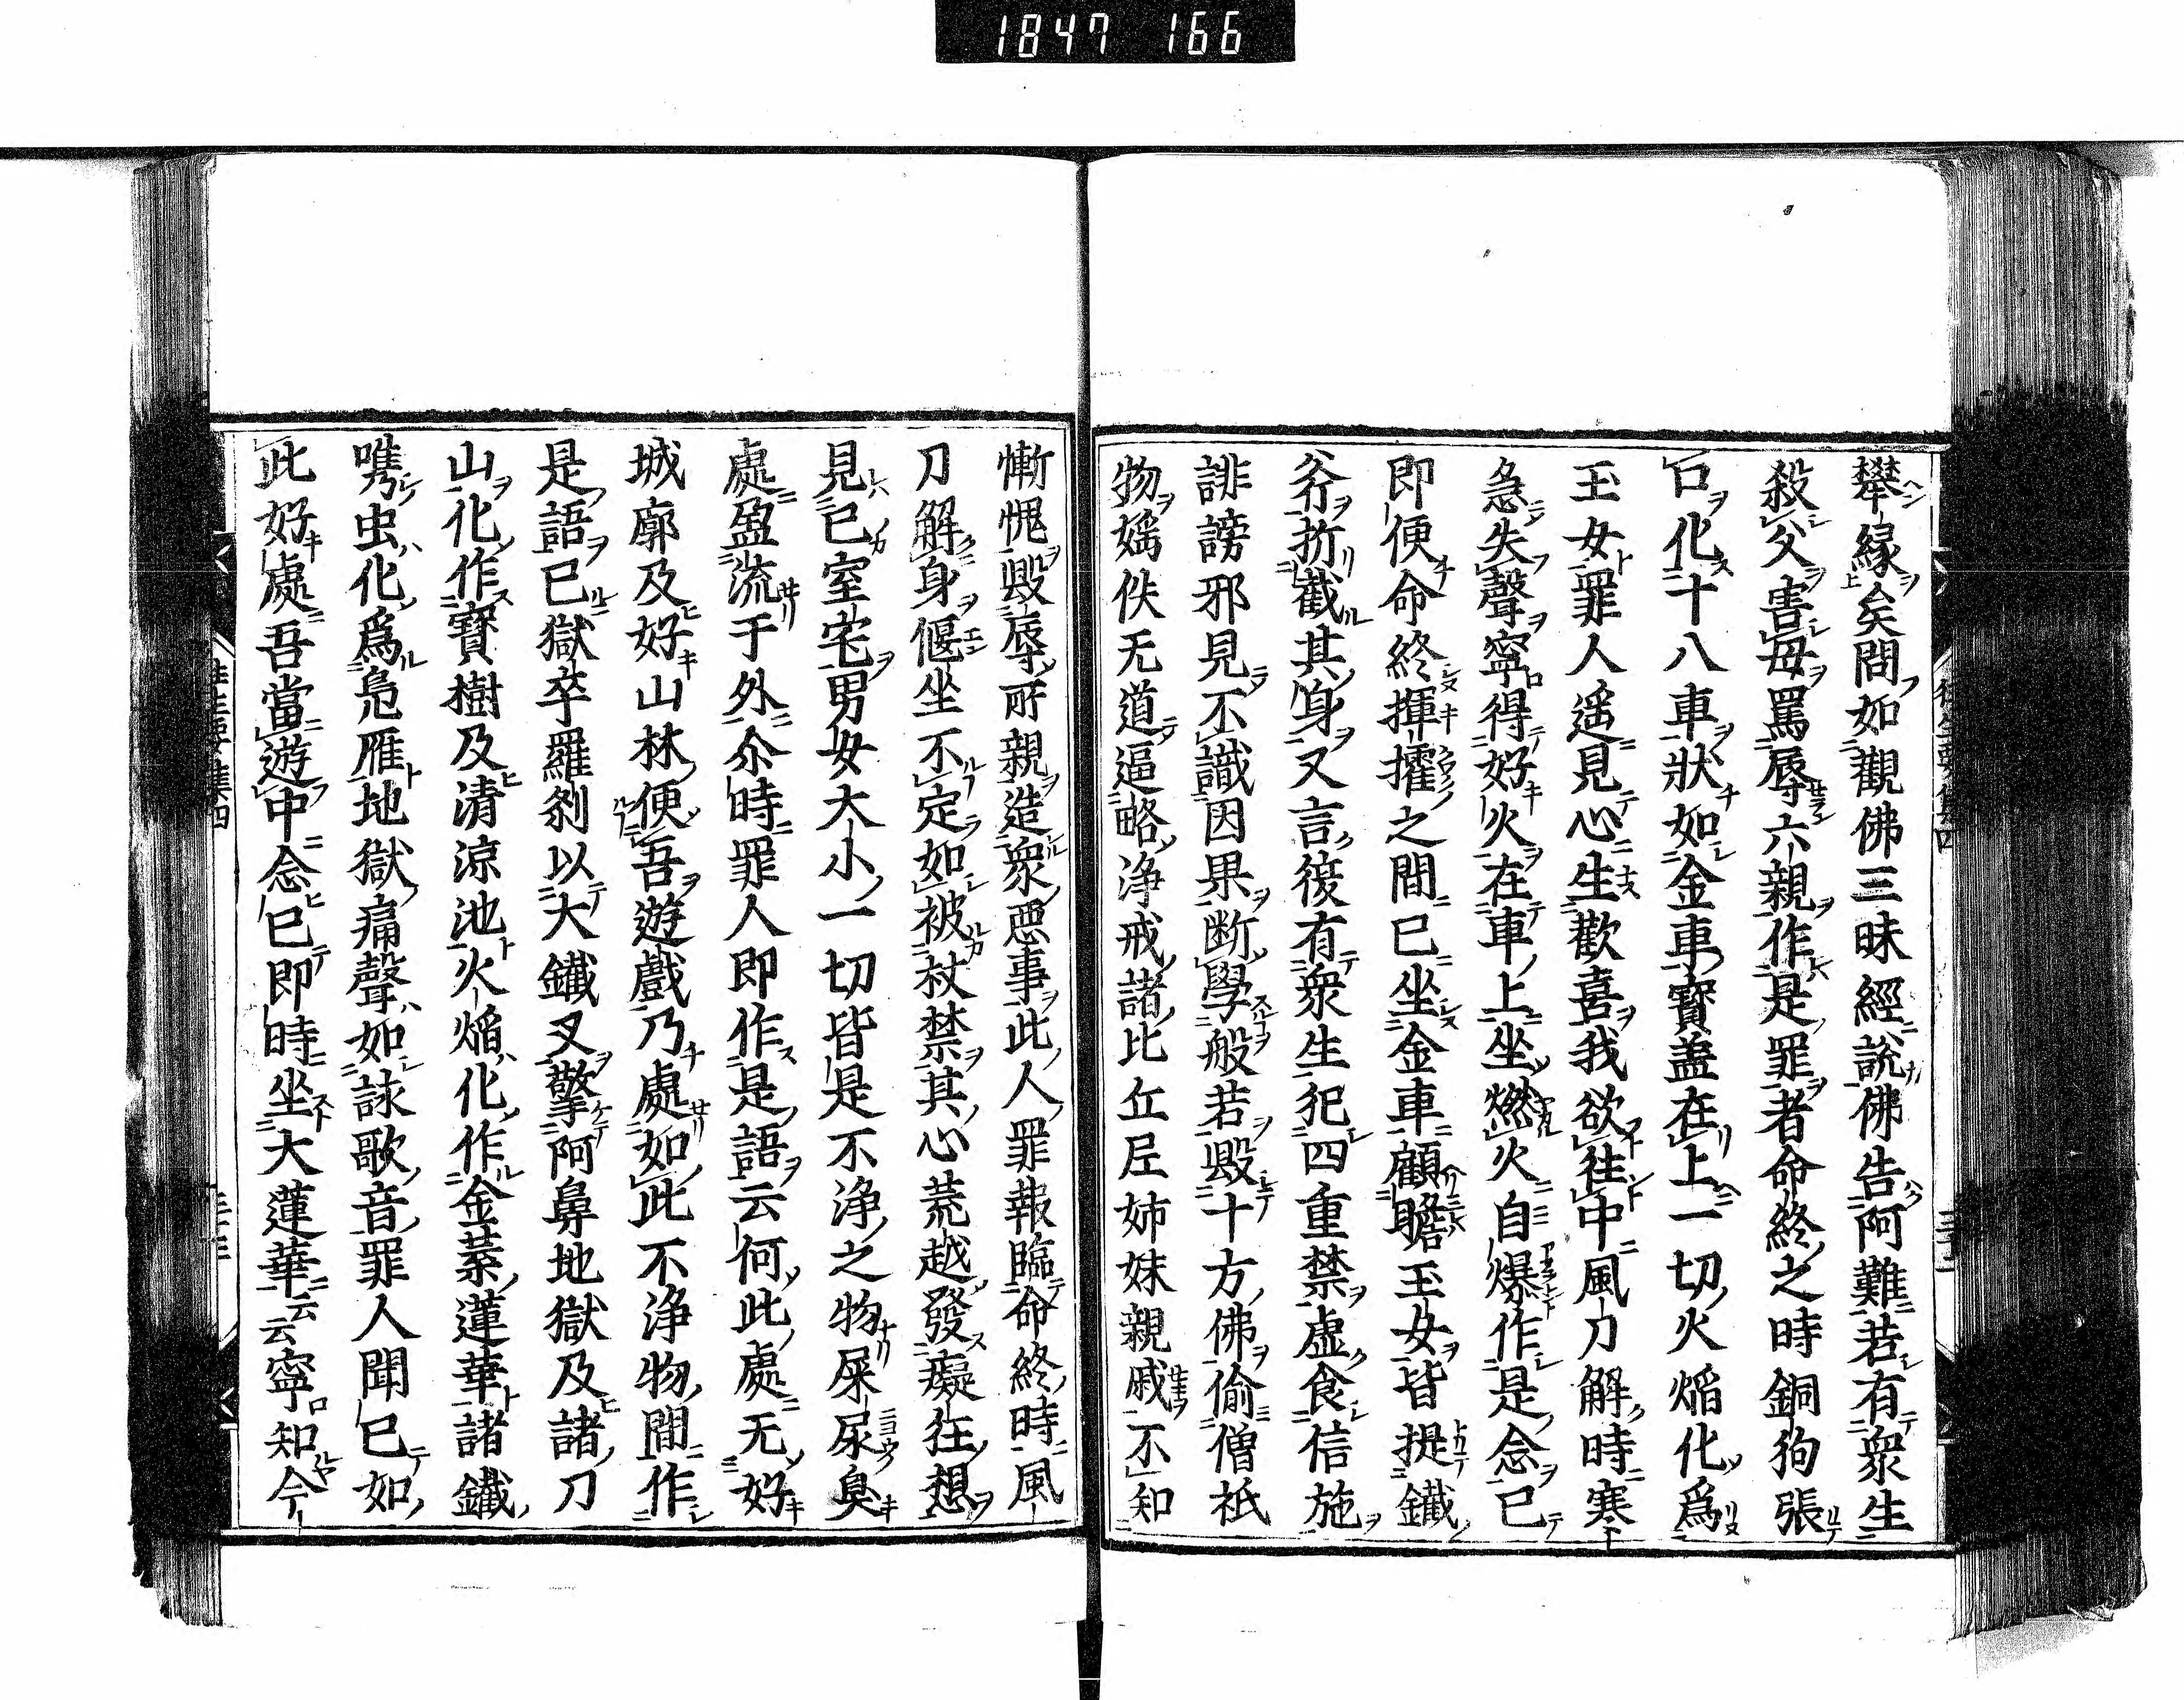 1847 166
攀縁矣問如觀佛三昧經説佛告阿難若有衆生
殺父害母罵辱六親作是罪者命終之時銅狗張
口化十八車狀如金車寳盖在上一切火焔化爲
玉女罪人遥見心生歡喜我欲往中風刀解時寒
急失聲寧得好火在車上坐燃火自爆作是念已
即便命終揮攉之間已坐金車顧瞻玉女皆提鐵
斧折截其身又言復有衆生犯四重禁虚食信施
誹謗邪見不識因果断學般若毀十方佛偷僧祇
物婬佚无道逼略浄戒諸比丘尼姉妹親戚不知
慚愧毀辱所親造衆惡事此人罪報臨命終時風
刀解身偃坐不定如被杖禁其心荒越發癡狂想
見已室宅男女大小一切皆是不浄之物屎尿臭
處盈流于外尒時罪人即作是語云何此處无好
城廓及好山林便吾遊戯乃處如此不浄物間作
是語已獄卒羅刹以大鐵叉擎阿鼻地獄及諸刀
山化作寳樹及清涼池火焔化作金葉蓮華諸鐵
㗱虫化爲鳧雁地獄痛聲如詠歌音罪人聞已如
此好處吾當遊中念已即時坐大蓮華云云寧知今